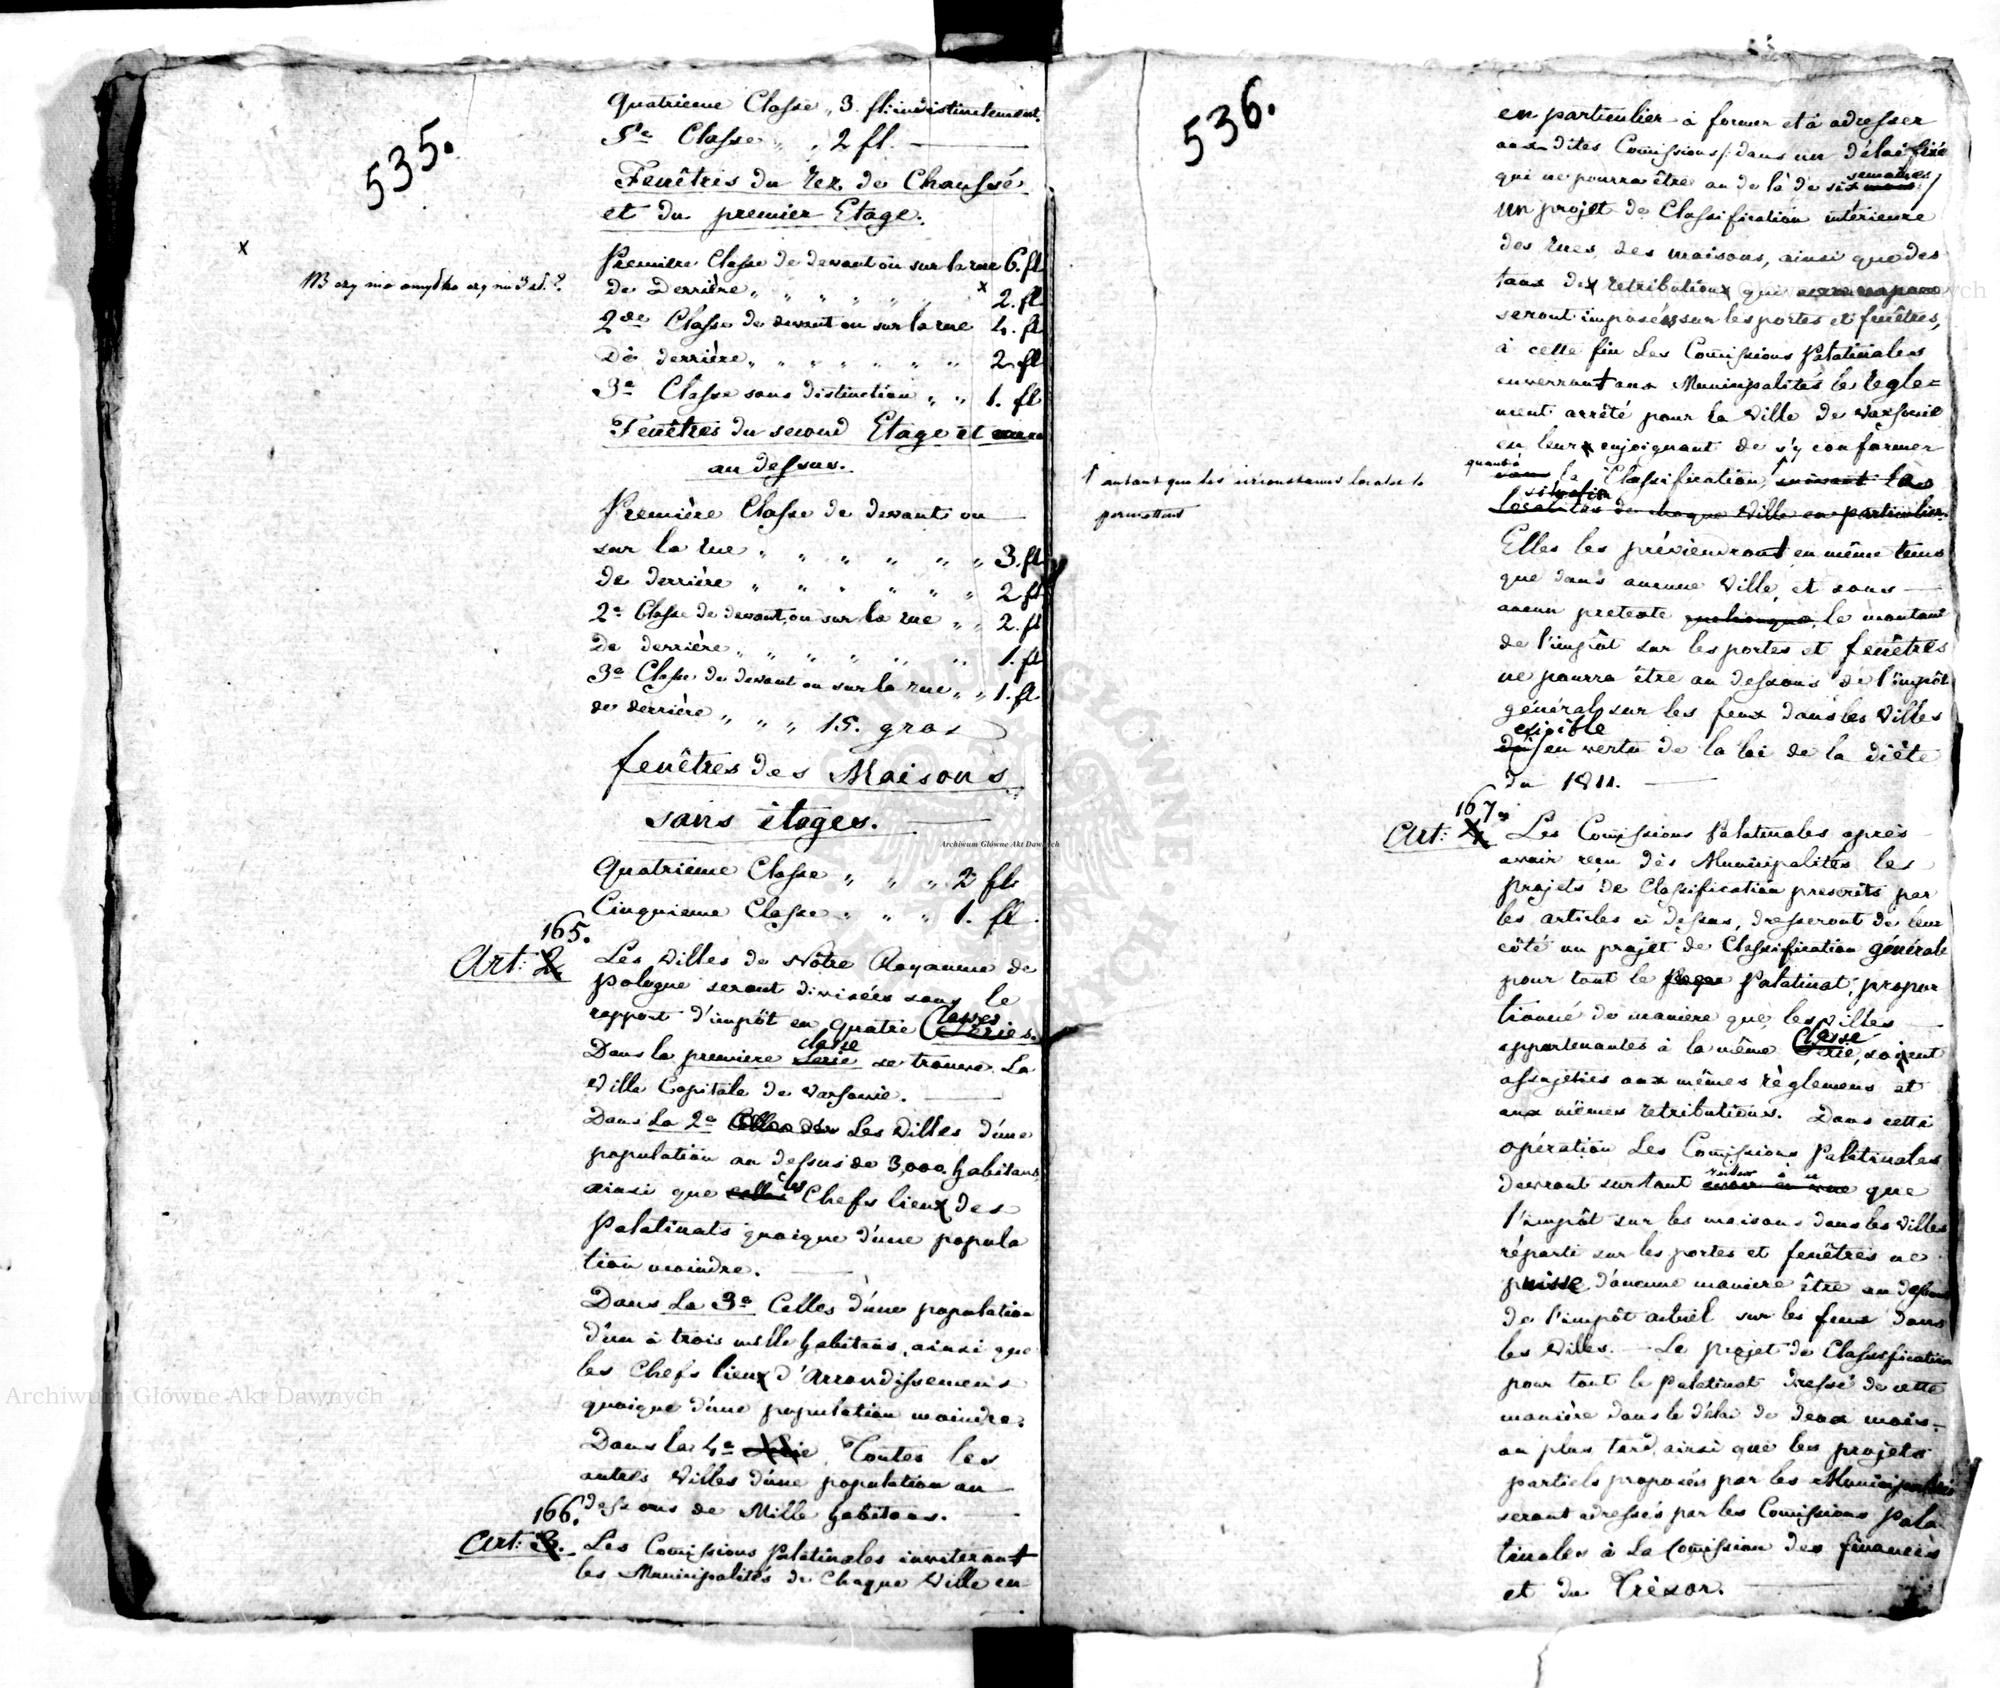 535.
Quatrieme Classe „ 3. fl: indistinctement.
5e Classe „ „ 2 fl.
Fenêtres du Rez de Chaussé
et du premier Etage.
Première Classe de devant ou sur la rue 6. fl
x
NB czy nie omyłka czy nie 3 zł.?
de Derrière „ „ „ „ „ „ x 2. fl
2de Classe de devant ou sur la rue 4. fl
De derrière „ „ „ „ „ „ 2 fl
3e Classe sans distinction „ „ 1. fl
Fenêtres du second Etage et
au dessus.
Première Classe de devant ou
sur la rue „ „ „ „ „ „ 3. fl
de derrière „ „ „ „ „ „ 2 fl
2e Classe de devant, ou sur la rue „ „ 2. fl
De derrière „ „ „ „ „ „ 1. fl
3e Classe de devant ou sur la rue „ „ 1. fl
de derrière „ „ „ 15. gros
fenêtres des Maisons
sans étages.
Quatrième Classe „ „ „ 2 fl.
Cinquieme Classe „ „ „ 1. fl.
165.
Art: 2. Les Villes de Nôtre Royaume de
Pologne seront divisées sous le
rapport d'impôt en quatre Classes Series.
Dans la première classe Serie se trouve La
Ville Capitale de Varsovie.
Dans La 2e Celles des Les Villes d'une
population au dessus de 3,000 habitans
ainsi que celles les Chefs lieux des
Palatinats quoique d'une popula
tion moindre.
Dans La 3e Celles d'une population
d'un à trois mille habitans, ainsi que
les Chefs lieux d'Arrondissemens
quoique d'une population moindre.
Dans la 4e Serie Toutes les
autres Villes d'une population au
dessous de Mille habitans.
166.
Art: 3. Les Comissions Palatinales inviteront
les Municipalités de Chaque Ville en
536.
en particulier à former et à adresser
aux dites Comissions /: dans un délai fixé
qui ne pourra être au de là de six semaines mois :/
un projet de Classification intérieure
des rues, des maisons, ainsi que des
taux des retributions qui
seront imposées sur les portes et fenêtres,
à cette fin Les Comissions Palatinales
enverront aux Municipalités le Regle=
ment arrêté pour la Ville de Varsovie
en leur enjoignant de s'y conformer
quant à
la Classification suivant la
situation
Localités de chaque Ville en particulier.
autant que les circonstances locales le
permettent
Elles les préviendront en même tems
que dans aucune Ville, et sous
aucun pretexte quelconque, le montant
de l'impôt sur les portes et fenêtres
ne pourra être au dessous de l'impôt
général sur les feux dans les Villes
exigible
dû en vertu de la loi de la diète
du 1811.
167.
Art: 4. Les Comissions Palatinales après
avoir reçu des Municipalités les
projets de Classification prescrits par
les articles ci dessus, dresseront de leur
côté un projet de Classification générale
pour tout le Palatinat, propor
tionné de manière que les Villes
appartenantes à la même Classe Serie, soient
assujeties aux mêmes règlemens et
aux mêmes retributions. Dans cette
opération Les Comissions Palatinales
devront surtout veiller à avoir en vue que
l'impôt sur les maisons dans les Villes
réparti sur les portes et fenêtres ne
puisse d'aucune maniere être au dessous
de l'impôt actuel sur les feux dans
les Villes. — Le projet de Classification
pour tout le Palatinat dressé de cette
manière dans le délai de deux mois
au plus tard, ainsi que les projets
partiels proposés par les Municipalités
seront adressés par les Comissions Pala
tinales à La Comission des finances
et du Trésor.
Archiwum Główne Akt Dawnych
Archiwum Główne Akt Dawnych
Archiwum Główne Akt Dawnych